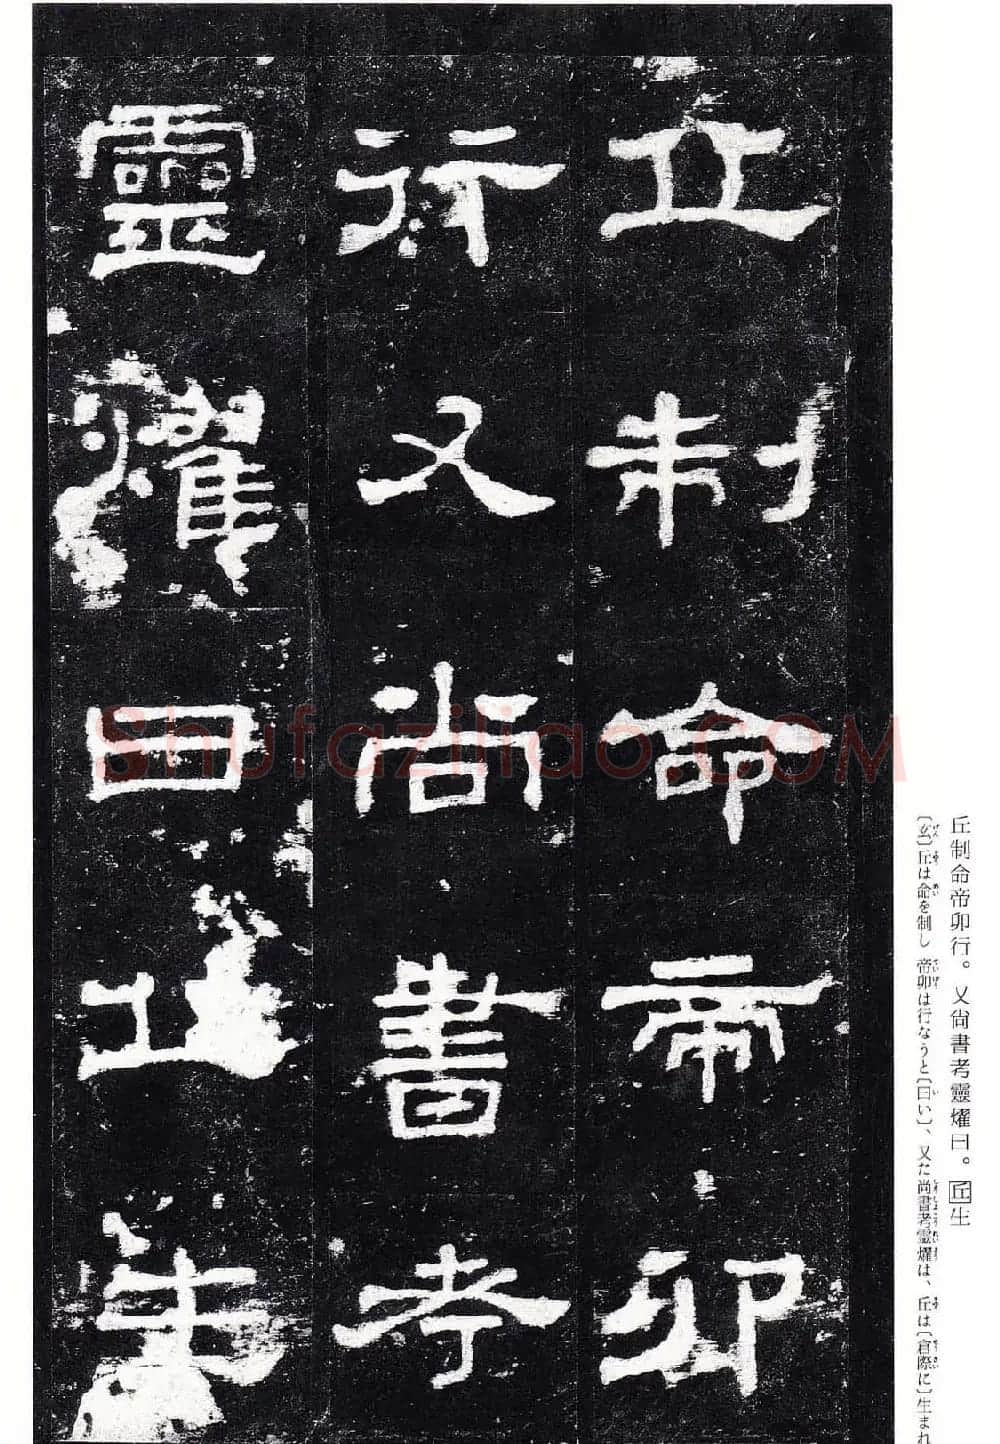 丘制命帝卯
行又尚書考
靈燿曰丘生
丘制命帝卯行。又尙書考靈燿曰。丘生
〔玄〕丘は命を制し 帝卯は行なうと〔曰い〕、又た尚書考靈燿は、丘は〔倉際に〕生まれ
Shufaziliao.COM